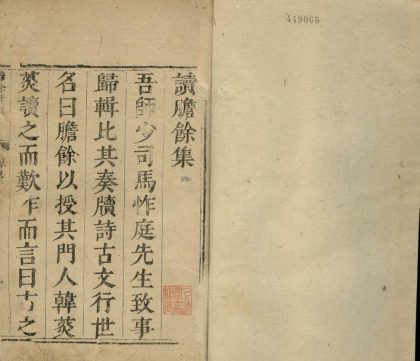 449065
讀膽餘集
吾師少司馬怍庭先生致事
歸輯比其奏牘詩古文行世
名曰膽餘以授其門人韓菼
菼讀之而歎作而言曰古之